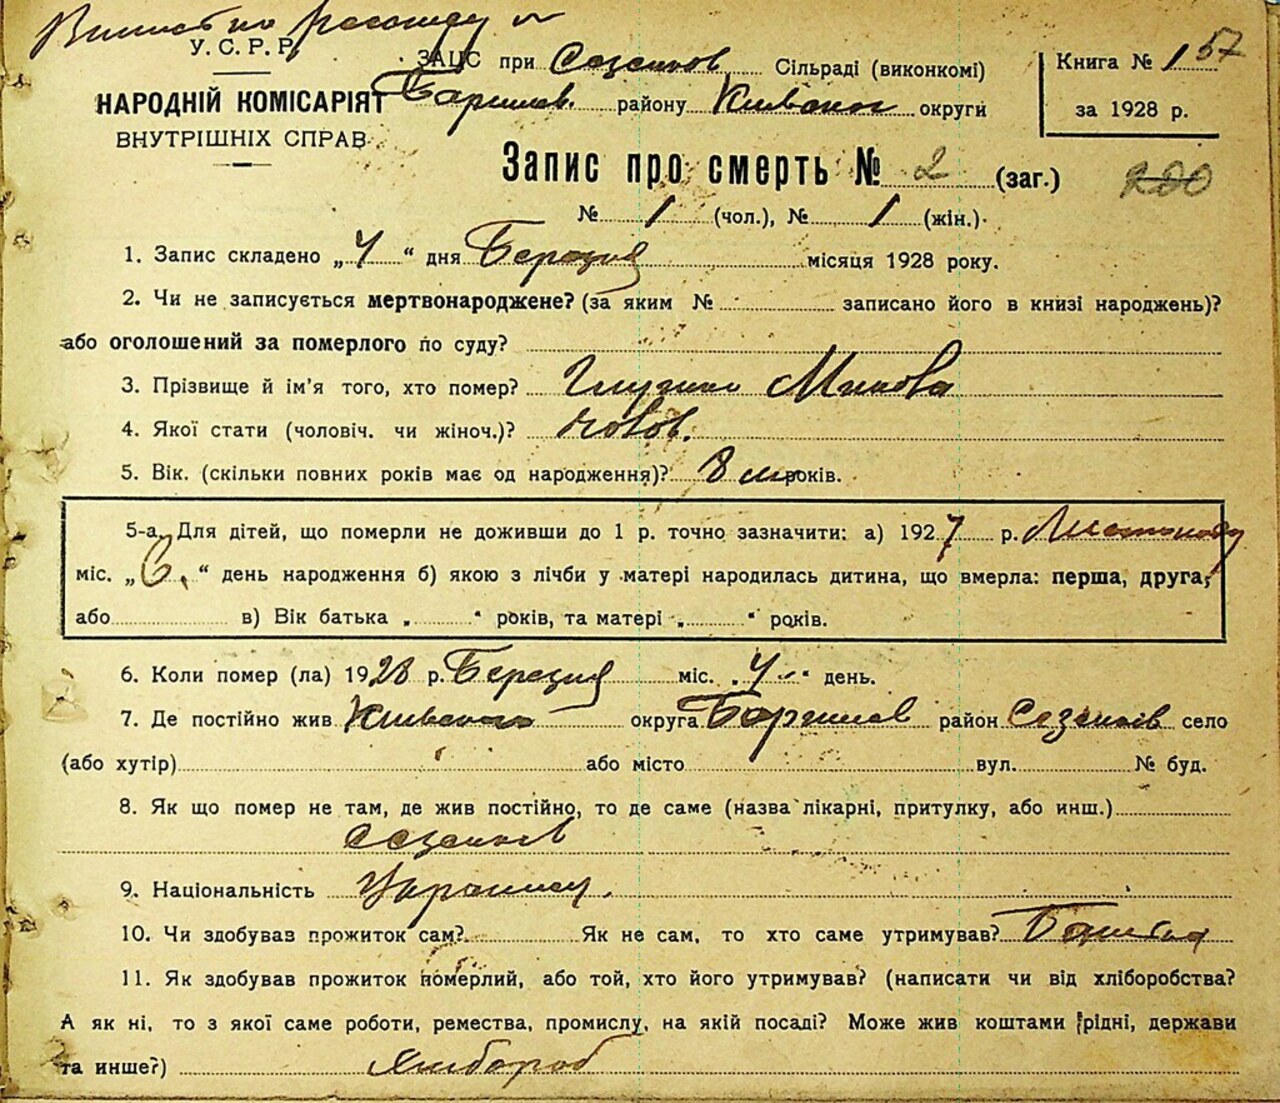 У. С. Р. Р.
ЗАЦС при Сезенков Сільраді (виконкомі)
Книга № 1 57
НАРОДНІЙ КОМІСАРІЯТ
Баришев. району Київської округи
за 1928 р.
ВНУТРІШНІХ СПРАВ
Запис про смерть № 2 (заг.) 200
№ 1 (чол.), № 1 (жін.)
1. Запис складено „ 4 “ дня Березня місяця 1928 року.
2. Чи не записується мертвонароджене? (за яким № записано його в книзі народжень)?
або оголошений за померлого по суду?
3. Прізвище й ім'я того, хто помер? Микола
4. Якої стати (чоловіч. чи жіноч.)? чолов.
5. Вік. (скільки повних років має од народження)? років.
5-а. Для дітей, що померли не доживши до 1 р. точно зазначити: а) 1927 р. Листопаду
міс. „ 6. “ день народження б) якою з лічби у матері народилась дитина, що вмерла: перша, друга,
або в) Вік батька „ “ років, та матері „ “ років.
6. Коли помер (ла) 1928 р. Березня міс. „ 4 “ день.
7. Де постійно жив Київської округа Баришев район Сезенків село
(або хутір) або місто вул. № буд.
8. Як що помер не там, де жив постійно, то де саме (назва лікарні, притулку, або инш.)
Сезенків
9. Національність Українец.
10. Чи здобував прожиток сам? Як не сам, то хто саме утримував? Батько
11. Як здобував прожиток померлий, або той, хто його утримував? (написати чи від хліборобства?
А як ні, то з якої саме роботи, ремества, промислу, на якій посаді? Може жив коштами рідні, держави
та инше?) Хлібороб